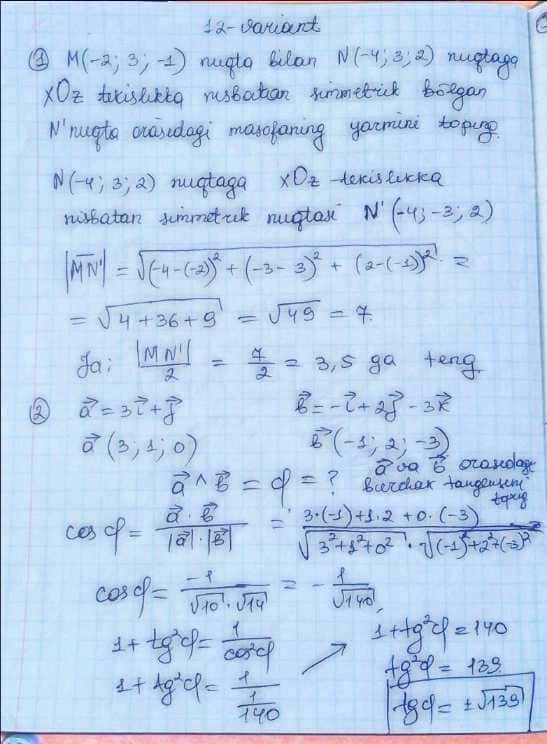 12-variant
① M(-2; 3; -1) nuqta bilan N(-4; 3; 2) nuqtaga
xOz tekislikka nisbatan simmetrik bõlgan
N' nuqta orasidagi masofaning yarmini toping.
N(-4; 3; 2) nuqtaga xOz tekislikka
nisbatan simmetrik nuqtasi N'(-4; -3; 2)
|MN'| = √((-4-(-2))² + (-3-3)² + (2-(-1))²) =
= √(4+36+9) = √49 = 7.
Ja; |MN'|/2 = 7/2 = 3,5 ga teng
② a⃗ = 3i⃗ + j⃗ b⃗ = -i⃗ + 2j⃗ - 3k⃗
a⃗ (3; 1; 0) b⃗ (-1; 2; -3)
a⃗ ^ b⃗ = φ = ? a⃗ va b⃗ orasidagi
burchak tangensini
toping
cos φ = a⃗ · b⃗ / |a⃗| · |b⃗| = 3·(-1)+1·2+0·(-3) / √(3²+1²+0²) · √((-1)²+2²+(-3)²)
cos φ = -1 / √10 · √14 = - 1/√140,
1 + tg²φ = 1/cos²φ
1 + tg²φ = 1/(1/140)
1 + tg²φ = 140
tg²φ = 139
tgφ = ±√139